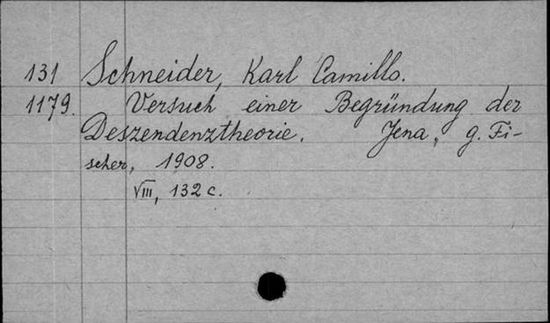 131 Schneider, Karl Camillo.
1179. Versuch einer Begründung der
Deszendenztheorie. Jena, G. Fi-
scher, 1908.
VIII, 132 c.